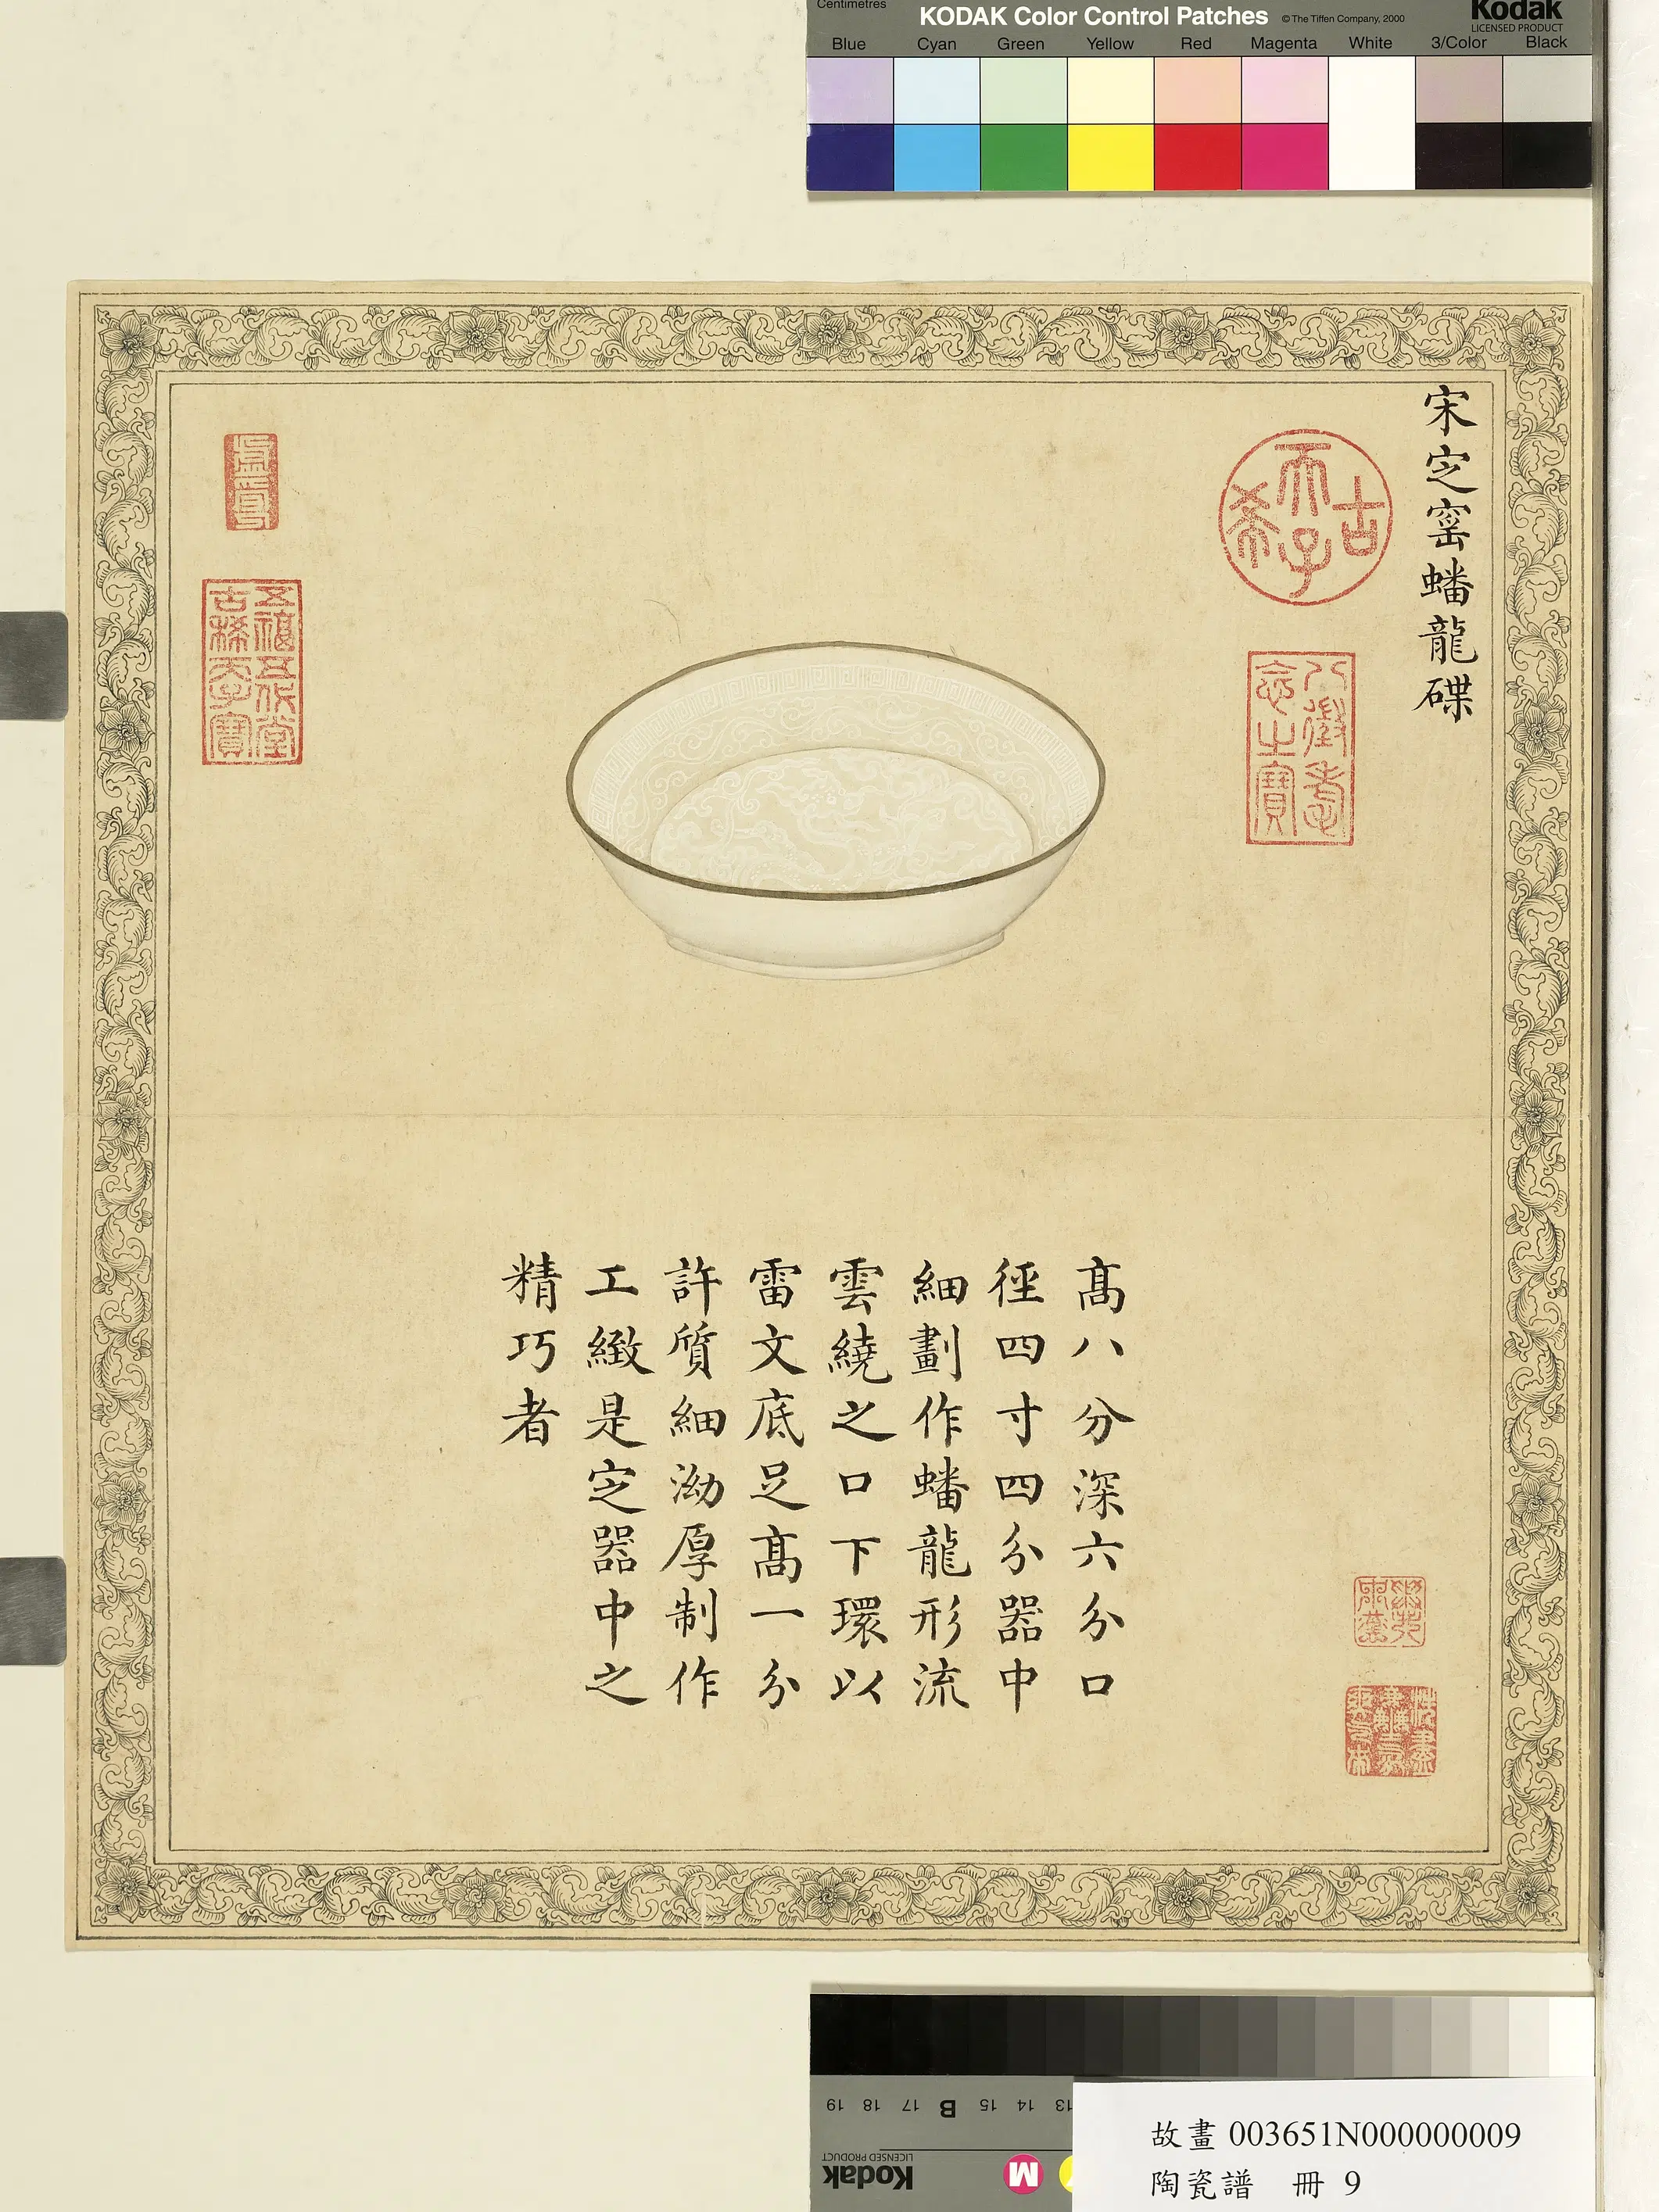 Centimetres
KODAK Color Control Patches
© The Tiffen Company, 2000
Kodak
LICENSED PRODUCT
Blue Cyan Green Yellow Red Magenta White 3/Color Black
宋定窰蟠龍碟
古
希
天子
八徵耄
念之寶
五福五代堂
古稀天子寶
高八分深六分口
徑四寸四分器中
細劃作蟠龍形流
雲繞之口下環以
雷文底足高一分
許質細泑厚制作
工緻是定器中之
精巧者
19 18 17 B 15 14 13
Kodak
LICENSED PRODUCT
M
故畫 003651N000000009
陶瓷譜 冊 9